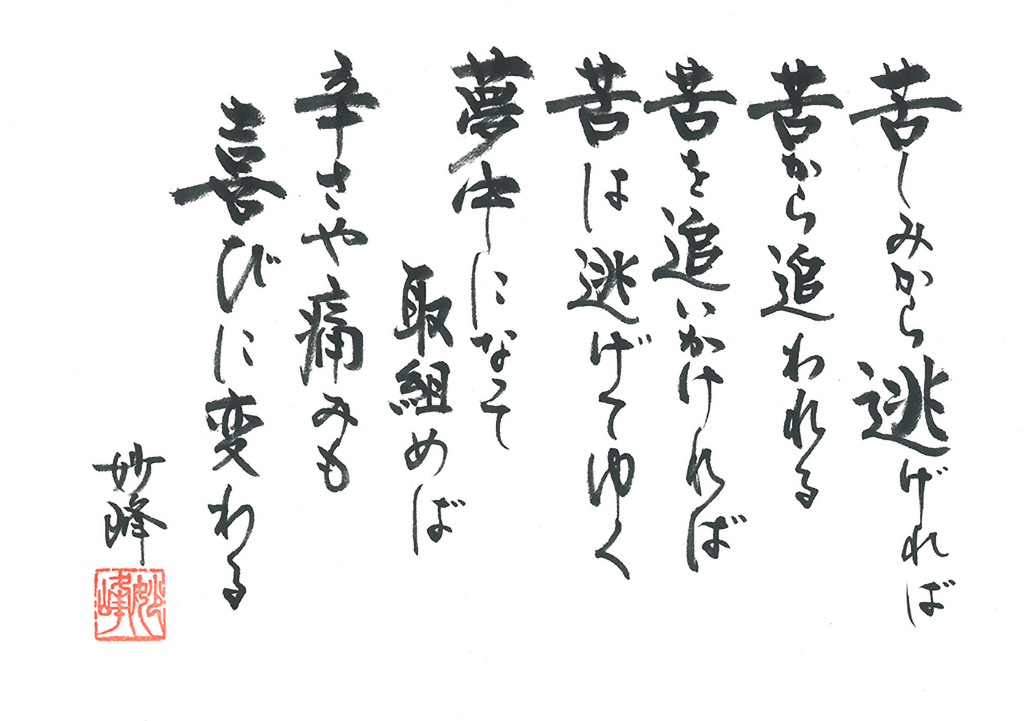 苦しみから逃げれば
苦から追われる
苦を追いかければ
苦は逃げてゆく
夢中になって
取組めば
辛さや痛みも
喜びに変わる
妙峰
妙峰